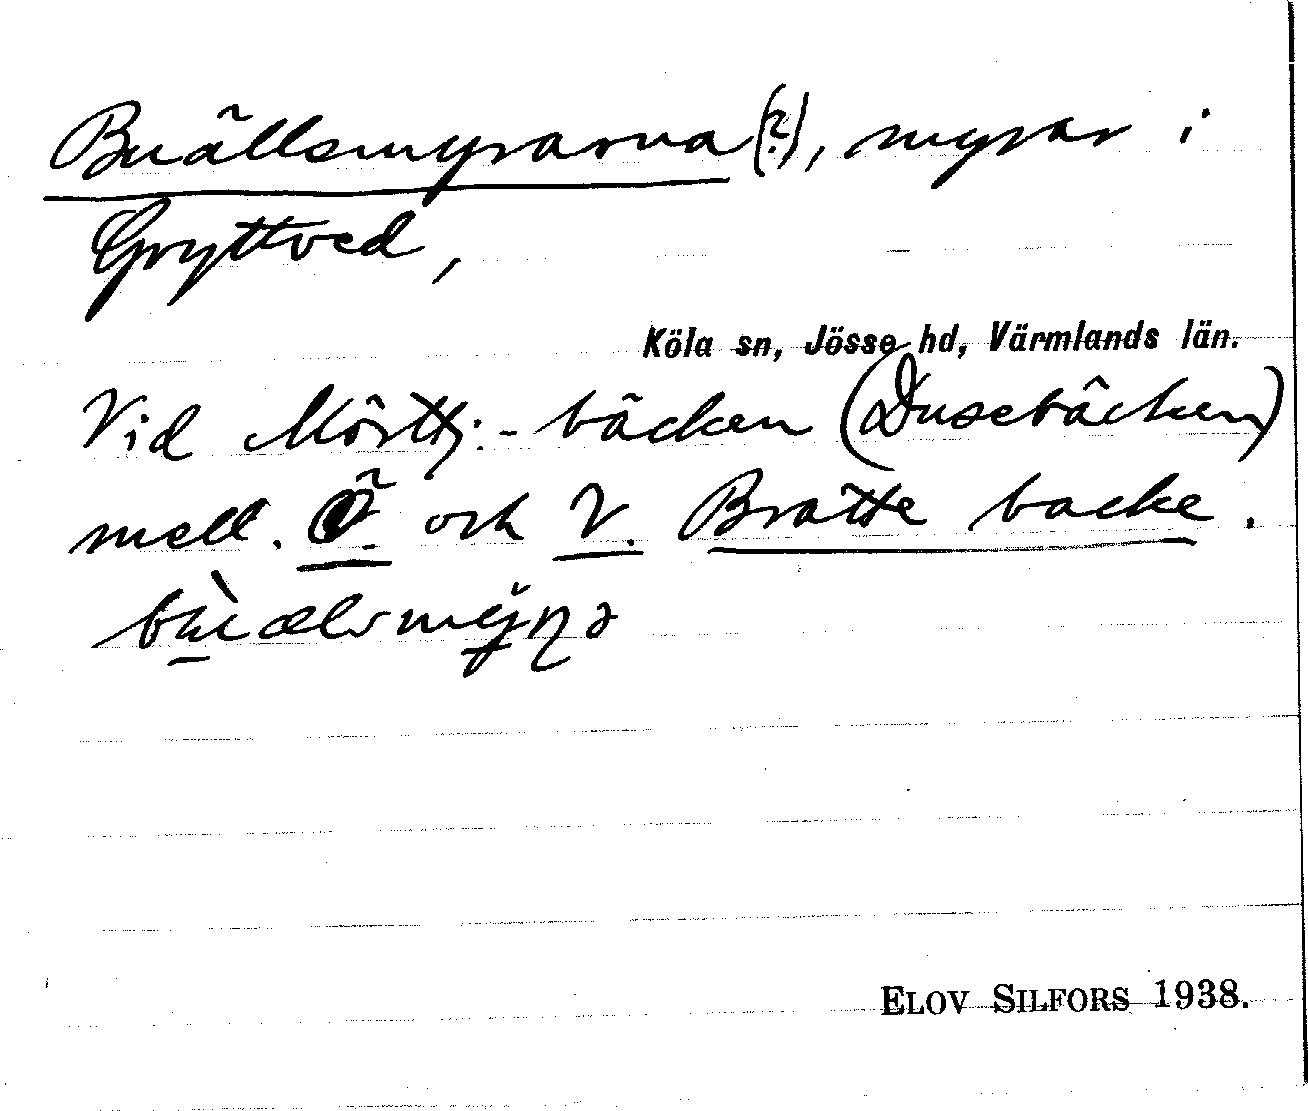 Buällsmyrarna(?), myrar i
Gryttved,
Köla sn, Jösse hd, Värmlands län.
Vid Mörttj:-bäcken (Dusebäcken)
mell. Ö. och V. Bratte backe.
ELOV SILFORS 1938.